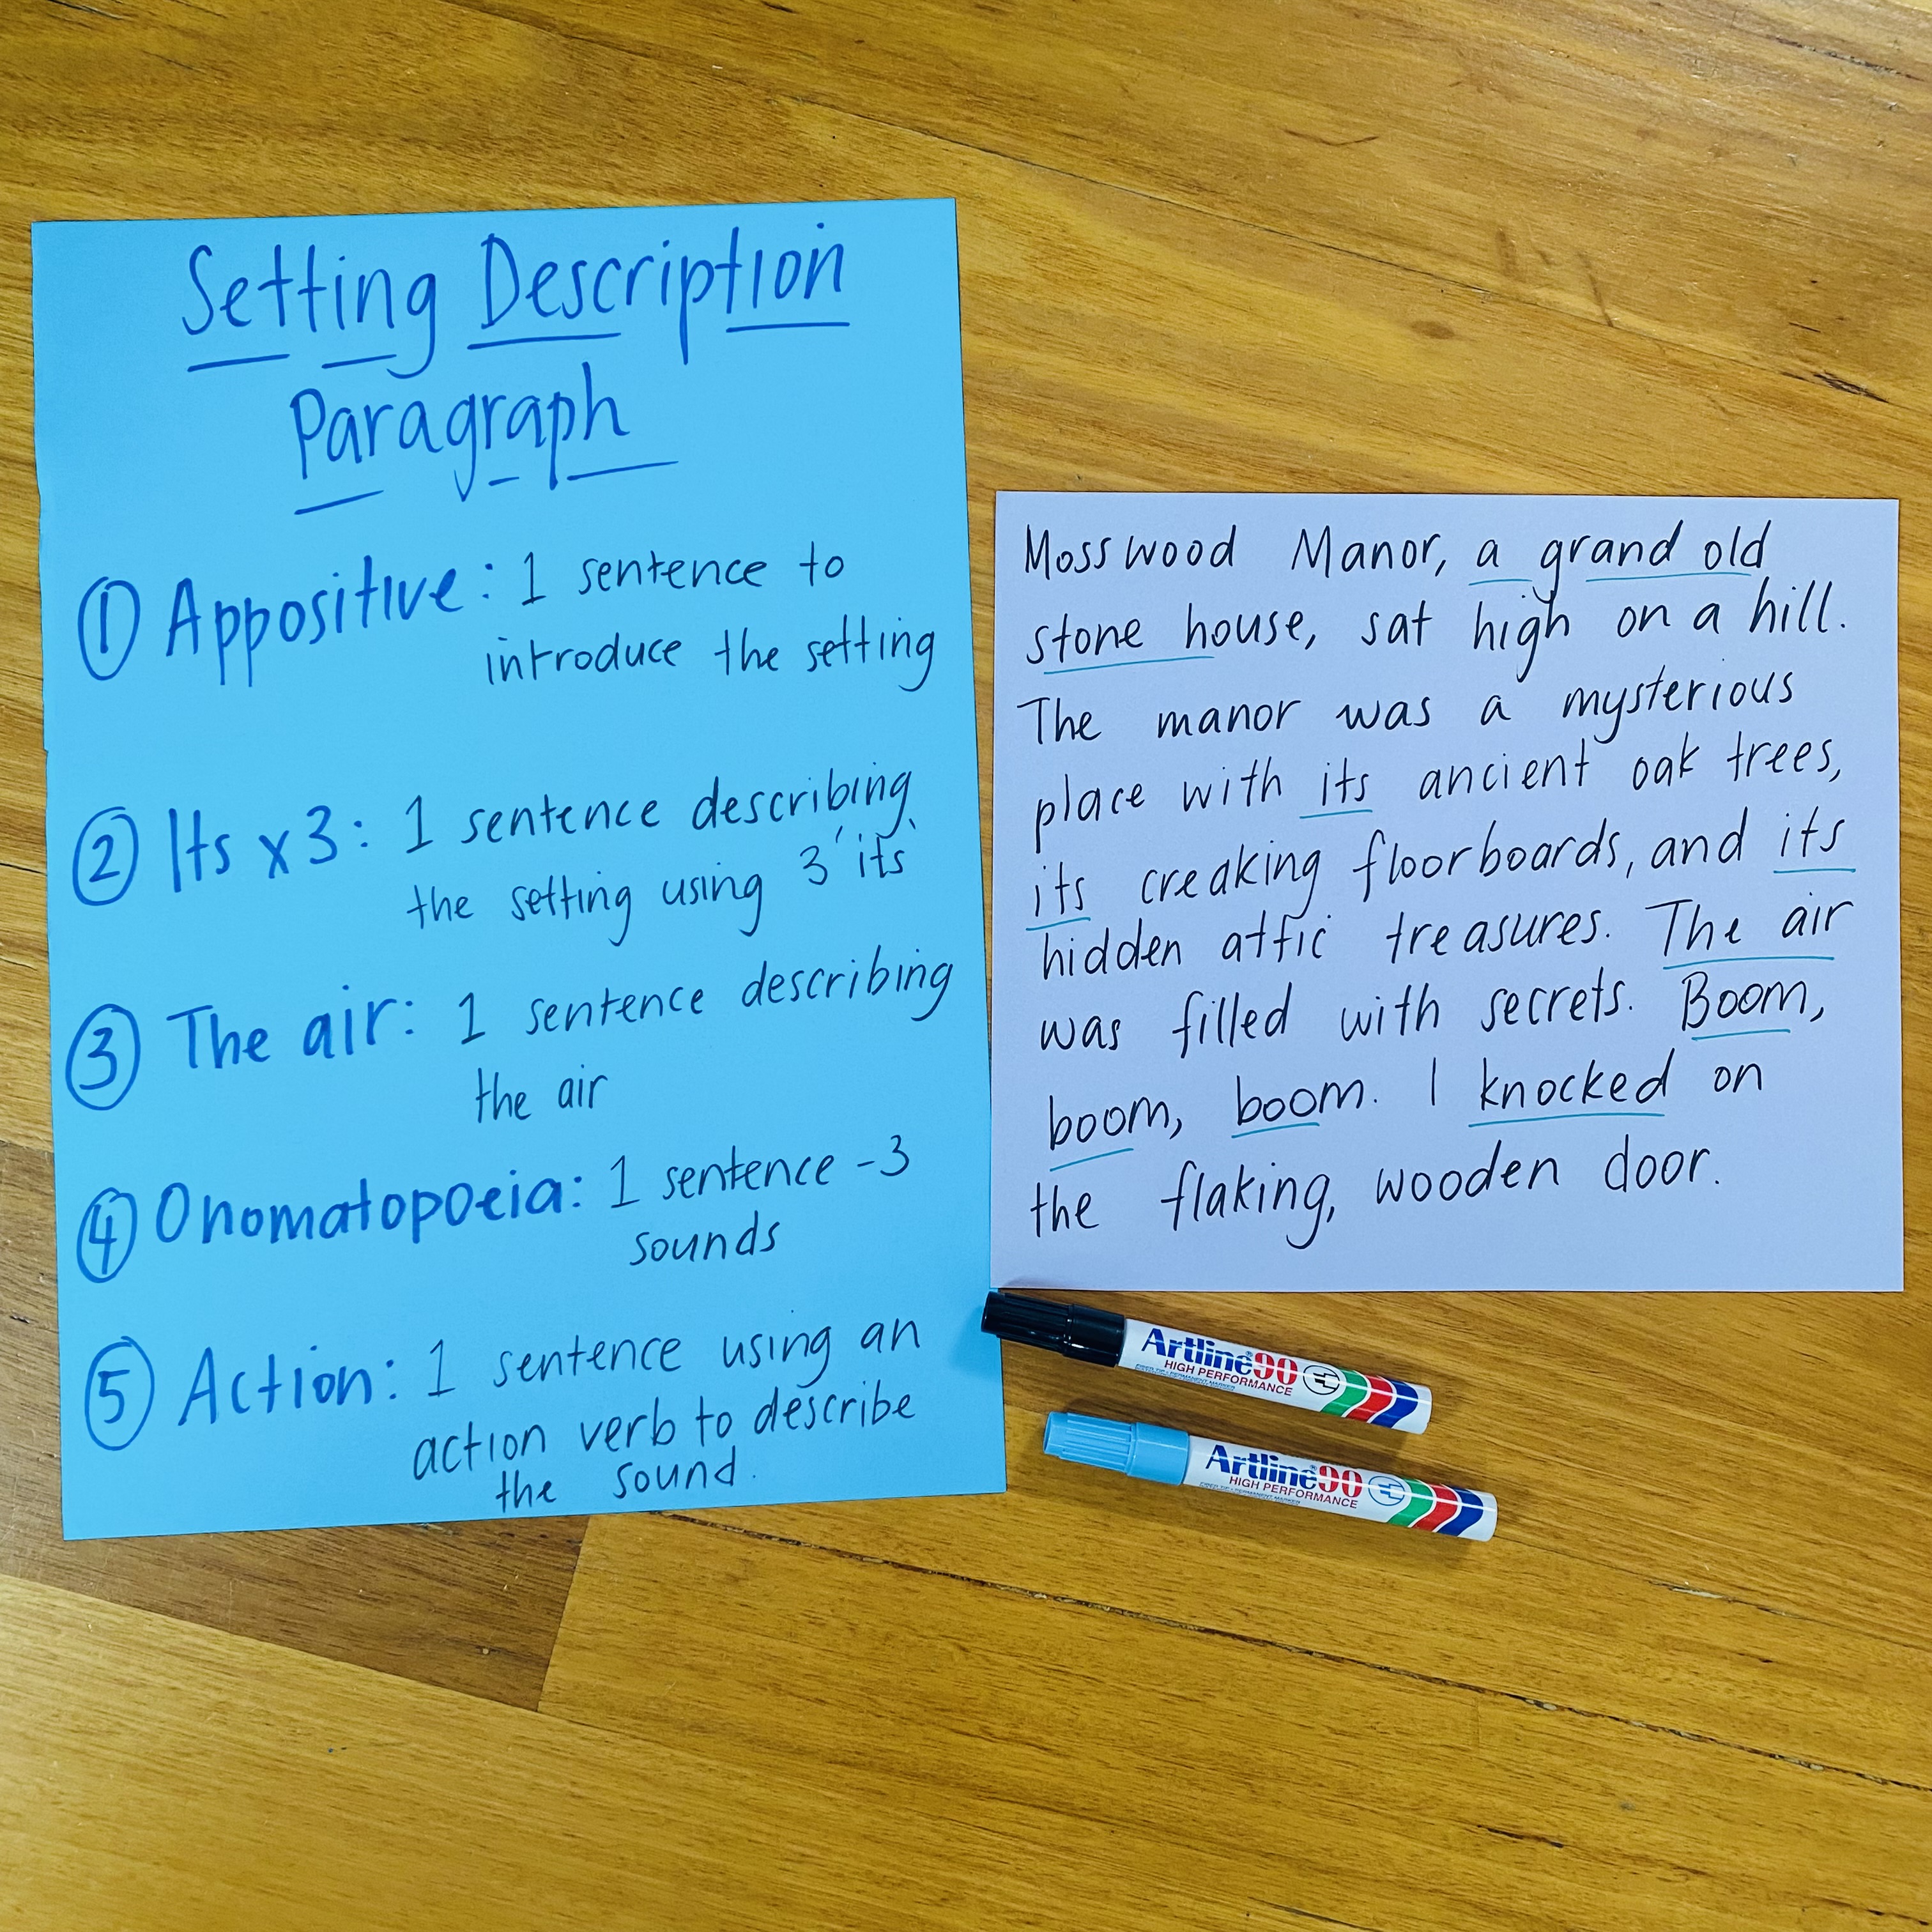 Setting Description
Paragraph
① Appositive: 1 sentence to
introduce the setting
② Its x3: 1 sentence describing
the setting using 3 'its'
③ The air: 1 sentence describing
the air
④ Onomatopoeia: 1 sentence - 3
sounds
⑤ Action: 1 sentence using an
action verb to describe
the sound.
Mosswood Manor, a grand old
stone house, sat high on a hill.
The manor was a mysterious
place with its ancient oak trees,
its creaking floorboards, and its
hidden attic treasures. The air
was filled with secrets. Boom,
boom, boom. I knocked on
the flaking, wooden door.
Artline 90
HIGH PERFORMANCE
Artline 90
HIGH PERFORMANCE